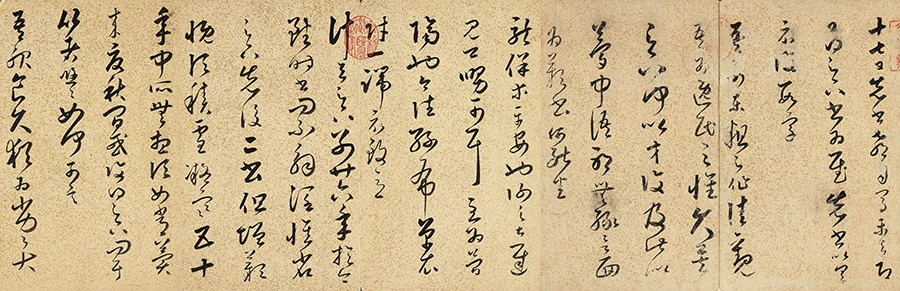 十七日先書郗司馬未去即
日得足下書為慰先書以具
示復數字
吾前東粗足作佳觀
吾為逸民之懷久矣足
下何以方復及此似
夢中語耶無緣言面
為歎書何能悉
龍保等平安也謝之甚遲
見卿舅可耳至為簡
隔也今往絲布單衣
財一端示致意
計與足下別廿六年於今
雖時書問不解闊懷省
足下先後二書但增歎
慨頃積雪凝寒五十
年中所無想頃如常冀
來夏秋間或復得足下問耳
比者悠悠如何可言
吾服食久猶為劣劣大